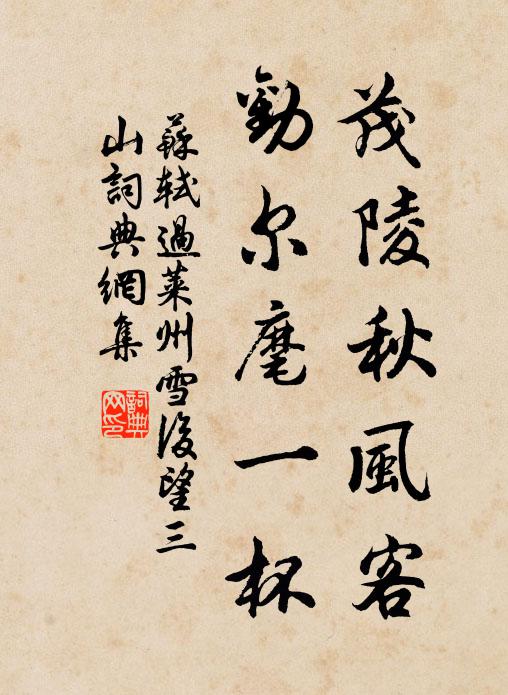 茂陵秋風客
勸尔麾一杯
蘇軾過萊州雪後望三
山詞典網集
詞典网印